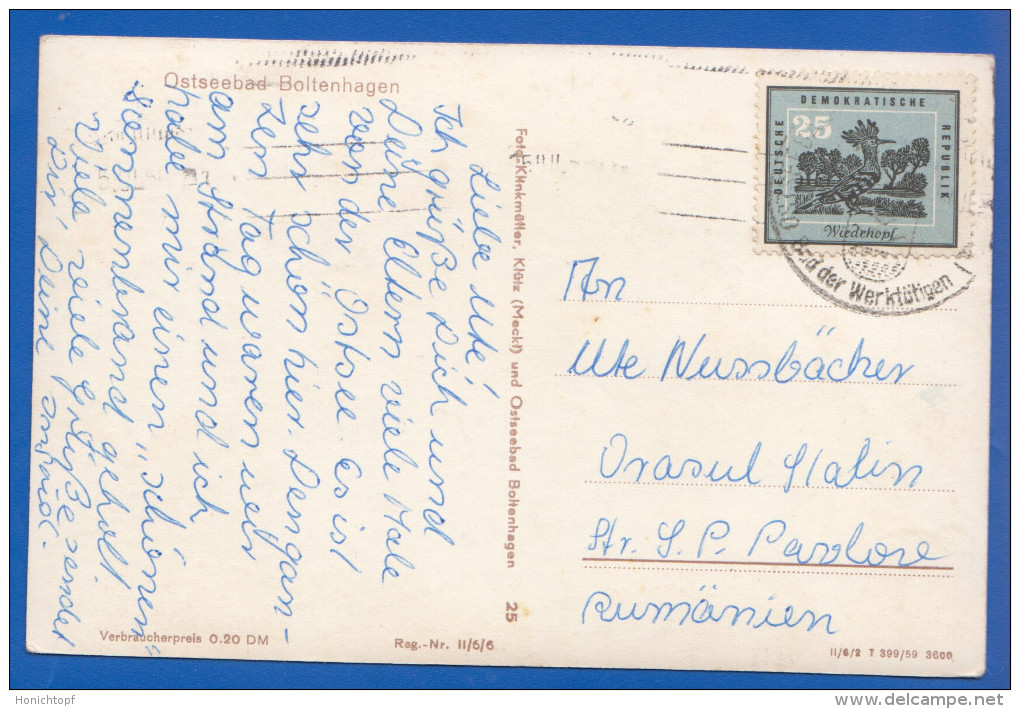 Ostseebad Boltenhagen
Liebe Ute!
Ich grüße Dich und
Deine Eltern viele Male
von der Ostsee. Es ist
sehr schön hier. Den gan-
zen Tag waren wir
am Strand und ich
habe mir einen „schönen"
Sonnenbrand geholt.
Viele viele Grüße sendet
Dir Deine
Foto-Klinkmüller, Klütz (Meckl) und Ostseebad Boltenhagen 25
DEUTSCHE
DEMOKRATISCHE
REPUBLIK
25
Wiedehopf
Bad der Werktätigen
An
Ute Nussbächer
Orasul Stalin
Str. S. P. Pavlov
Rumänien
Verbraucherpreis 0.20 DM
Reg.-Nr. II/6/6
II/6/2 T 399/59 3600
Honichtopf
www.delcampe.net